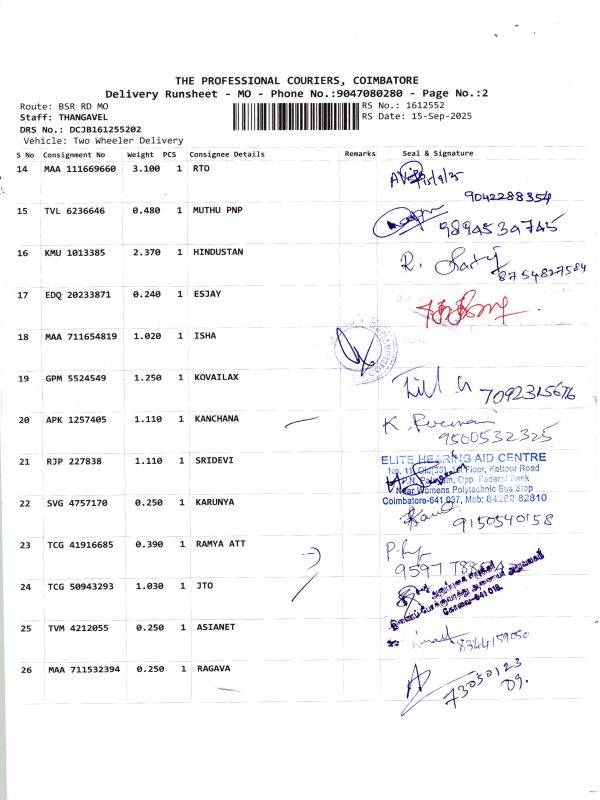 THE PROFESSIONAL COURIERS, COIMBATORE
Delivery Runsheet - MO - Phone No.:9047080280 - Page No.:2
Route: BSR RD MO RS No.: 1612552
Staff: THANGAVEL RS Date: 15-Sep-2025
DRS No.: DCJB161255202
Vehicle: Two Wheeler Delivery
S No Consignment No Weight PCS Consignee Details Remarks Seal & Signature
14 MAA 111669660 3.100 1 RTO 15/9/25
9042288354
15 TVL 6236646 0.480 1 MUTHU PNP 9894534745
16 KMU 1013385 2.370 1 HINDUSTAN R.
8754827584
17 EDQ 20233871 0.240 1 ESJAY
18 MAA 711654819 1.020 1 ISHA
19 GPM 5524549 1.250 1 KOVAILAX 7092315676
20 APK 1257405 1.110 1 KANCHANA K.
9500532325
21 RJP 227838 1.110 1 SRIDEVI ELITE HEARING AID CENTRE
No. 11, Old(35), 1st Floor, Kattoor Road
P.N. Palayam, Opp. Federal Bank
Near Womens Polytechnic Bus Stop
Coimbatore-641 037, Mob: 84282 82810
22 SVG 4757170 0.250 1 KARUNYA
9150540158
23 TCG 41916685 0.390 1 RAMYA ATT
9597
24 TCG 50943293 1.030 1 JTO
கோவை-641 018.
25 TVM 4212055 0.250 1 ASIANET 8344159050
26 MAA 711532394 0.250 1 RAGAVA
73050123
09.